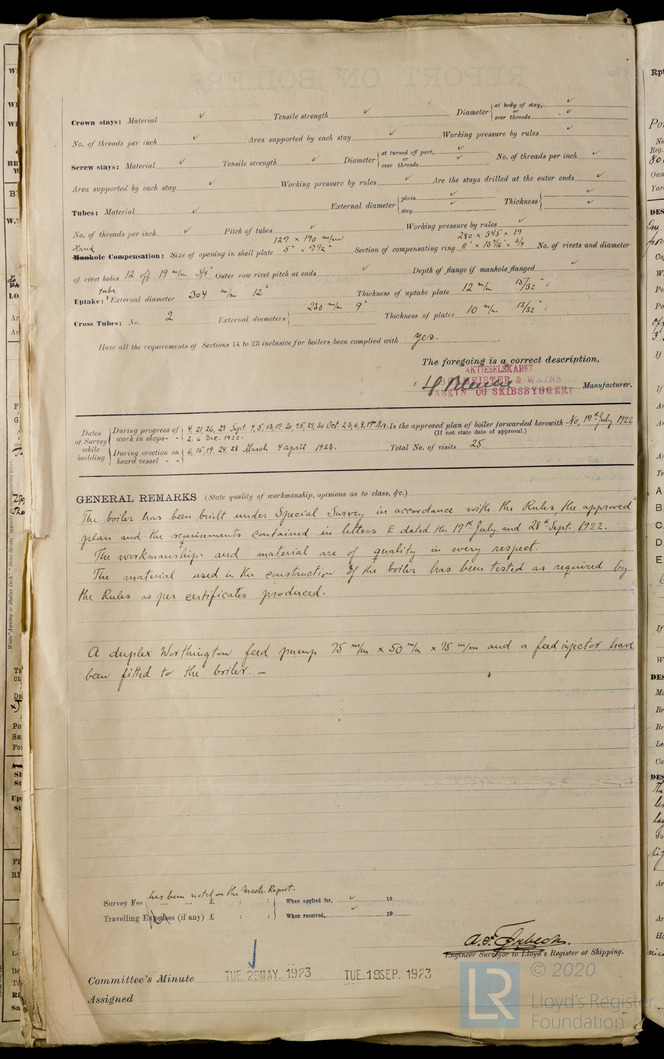 Crown stays: Material ✓ Tensile strength ✓ Diameter { at body of stay, ✓ or over threads ✓
No. of threads per inch ✓ Area supported by each stay ✓ Working pressure by rules ✓
Screw stays: Material ✓ Tensile strength ✓ Diameter { at turned off part, ✓ or over threads ✓ No. of threads per inch ✓
Area supported by each stay ✓ Working pressure by rules ✓ Are the stays drilled at the outer ends ✓
Tubes: Material ✓ External diameter { plain ✓ stay ✓ Thickness { ✓ ✓
No. of threads per inch ✓ Pitch of tubes ✓ Working pressure by rules ✓
Hand 127 × 190 m/m 280 × 345 × 19
Manhole Compensation: Size of opening in shell plate 5" × 7½" Section of compensating ring 11" × 13 9/16" × 3/4 No. of rivets and diameter
of rivet holes 12 off 19 m/m 3/4" Outer row rivet pitch at ends ✓ Depth of flange if manhole flanged ✓
Uptake: tube External diameter 304 m/m 12" Thickness of uptake plate 12 m/m 15/32"
Cross Tubes: No. 2 External diameters { 230 m/m 9" Thickness of plates 10 m/m 13/32"
Have all the requirements of Sections 14 to 23 inclusive for boilers been complied with yes.
The foregoing is a correct description,
AKTIESELSKABET
BURMEISTER & WAINS
MASKIN OG SKIBSBYGGERI
Manufacturer.
Dates of Survey while building { During progress of work in shops - - 4, 21, 26, 29 Sept. 9, 5, 13, 19, 21, 25, 27, 30 Oct. 2, 3, 6, 8, 17 Nov. 2, 6 Dec. 1922. Is the approved plan of boiler forwarded herewith No, 19th July 1922
(If not state date of approval.)
During erection on board vessel - - 6, 15, 19, 24, 28 March 4 April 1923. Total No. of visits 25.
GENERAL REMARKS (State quality of workmanship, opinions as to class, &c.)
The boiler has been built under Special Survey in accordance with the Rules, the approved
plan and the requirements contained in letters E dated the 19th July and 28th Sept. 1922.
The workmanship and material are of quality in every respect.
The material used in the construction of the boiler has been tested as required by
the Rules as per certificates produced.
A duplex Worthington feed pump 75 m/m × 50 m/m × 75 m/m and a feed injector have
been fitted to the boiler. —
has been noted on the Mach. Report.
Survey Fee ... ... £ : : When applied for, ✓ 19
Travelling Expenses (if any) £ : : When received, ✓ 19
Engineer Surveyor to Lloyd's Register of Shipping.
Committee's Minute TUE. 29 MAY. 1923 TUE. 18 SEP. 1923
Assigned
LR © 2020
Lloyd's Register
Foundation